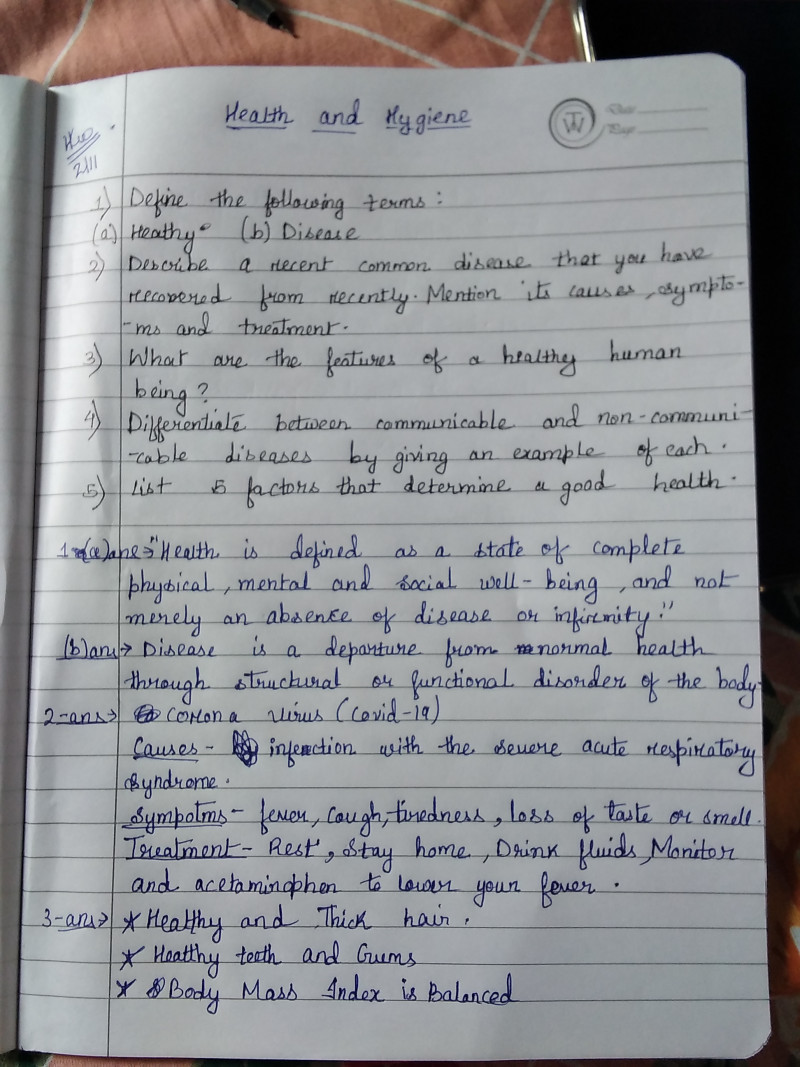 Health and Hygiene
Date
Page
HW
2/11
1) Define the following terms:
(a) Heathy (b) Disease
2) Describe a recent common disease that you have
recovered from recently. Mention its causes, sympto-
-ms and treatment.
3) What are the features of a healthy human
being?
4) Differentiate between communicable and non-communi-
-cable diseases by giving an example of each.
5) List 5 factors that determine a good health.
1-(a)ans→ "Health is defined as a state of complete
physical, mental and social well-being, and not
merely an absense of disease or infirmity."
(b)ans→ Disease is a departure from normal health
through structural or functional disorder of the body
2-ans→ Corona virus (Covid-19)
Causes - infection with the severe acute respiratory
syndrome.
Sympotms - fever, cough, tiredness, loss of taste or smell.
Treatment - Rest, Stay home, Drink fluids, Monitor
and acetaminophen to lower your fever.
3-ans→ * Healthy and Thick hair.
* Healthy teeth and Gums
* Body Mass Index is Balanced